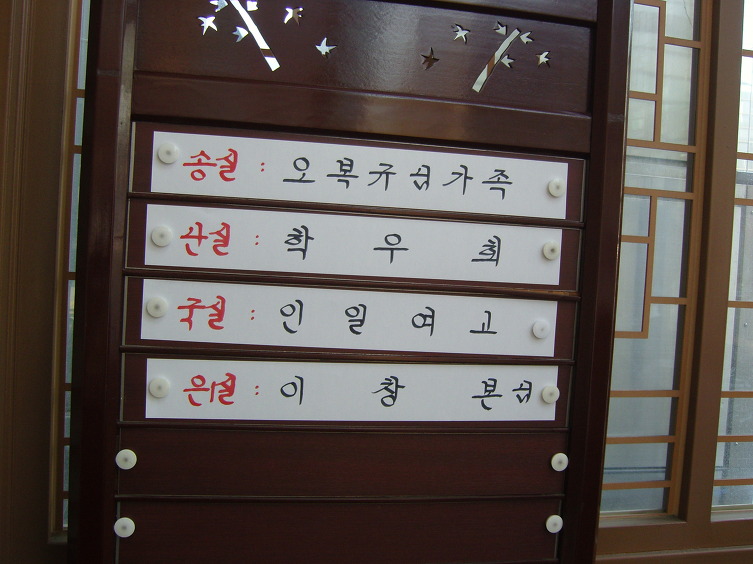 송실 : 오복규님가족
산실 : 학우회
국실 : 인일여고
은실 : 이창본님